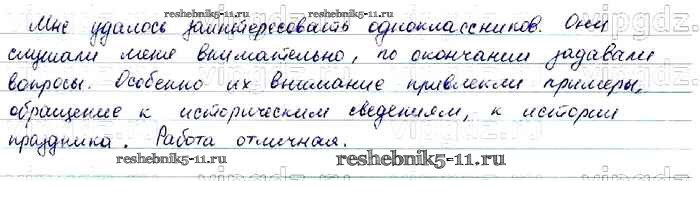 Мне удалось заинтересовать одноклассников. Они
слушали меня внимательно, по окончании задавали
вопросы. Особенно их внимание привлекли примеры,
обращение к историческим сведениям, к истории
праздника. Работа отличная.
reshebnik5-11.ru
reshebnik5-11.ru
reshebnik5-11.ru
reshebnik5-11.ru
vipgdz.com